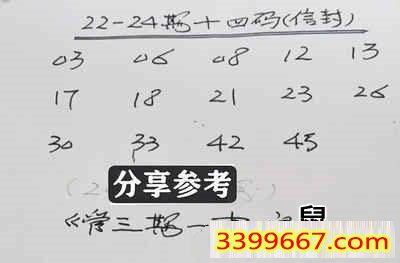 22-24期十四码(信封)
03 06 08 12 13
17 18 21 23 26
30 33 42 45
分享参考
管三期一肖:鼠
3399667.com